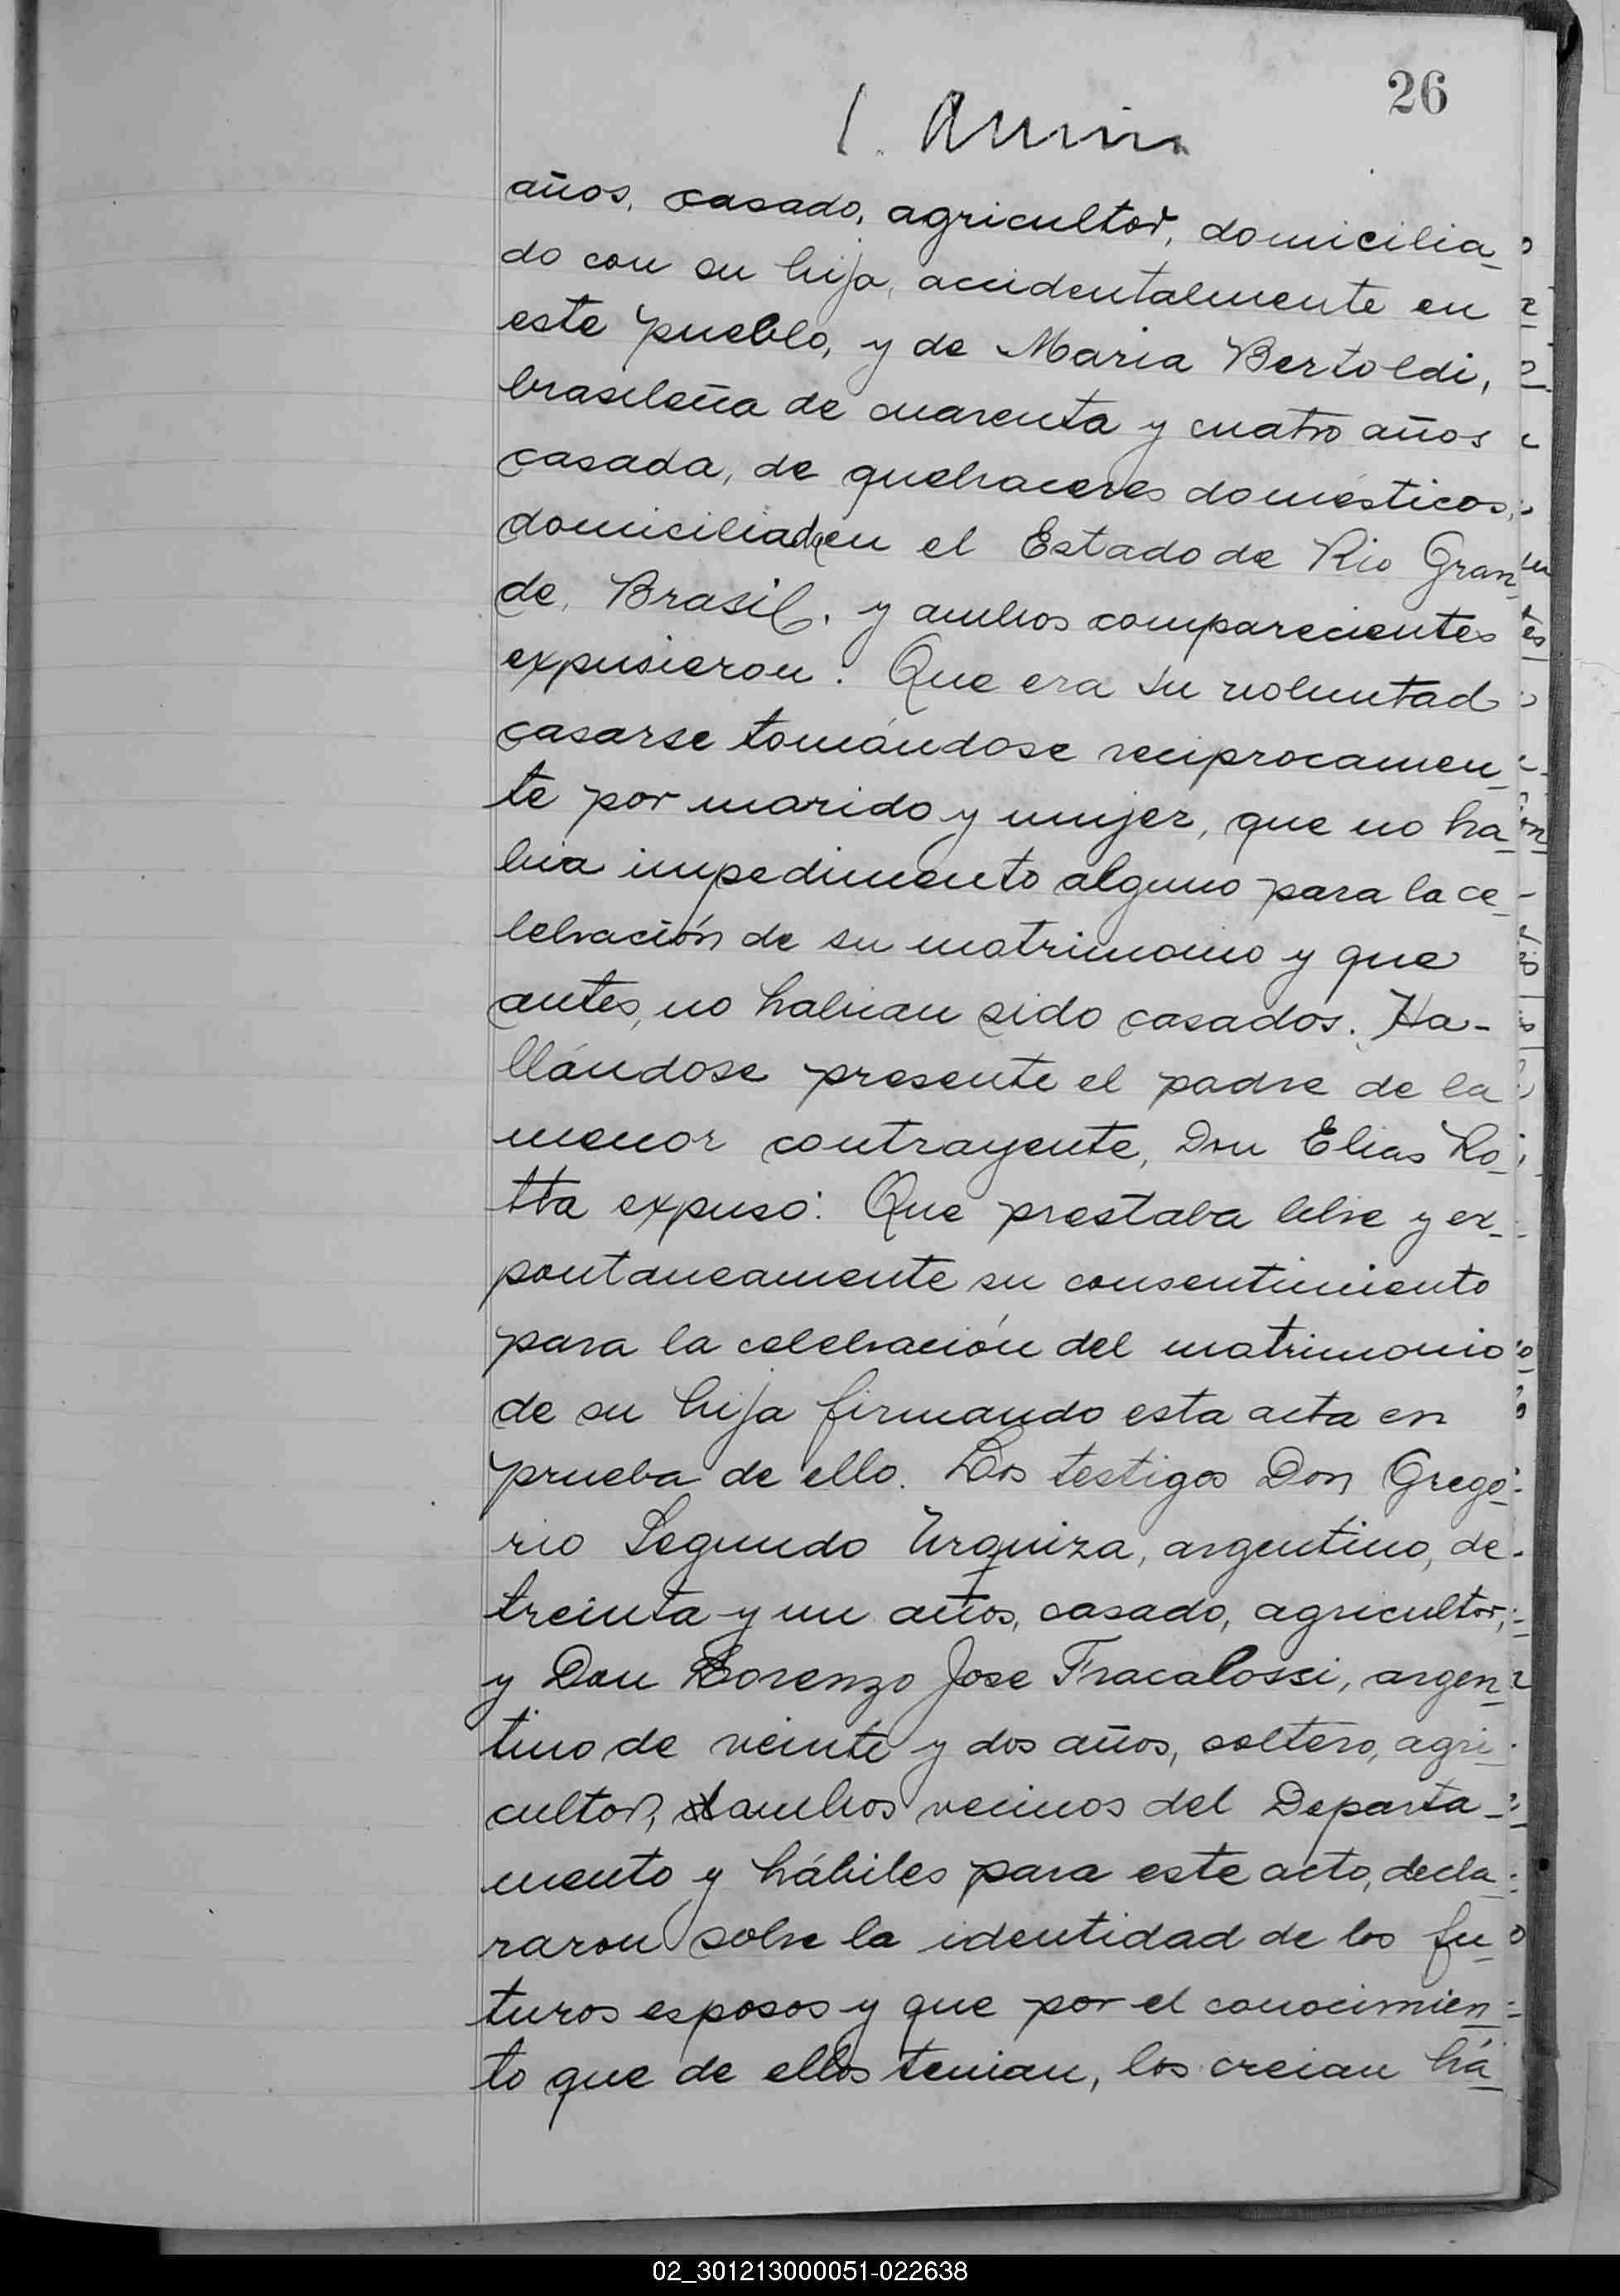 26
años, casado, agricultor, domicilia-
do con su hija, accidentalmente en
este pueblo, y de Maria Bertoldi,
brasileña de cuarenta y cuatro años
casada, de quehaceres domésticos,
domiciliada en el Estado de Rio Gran-
de, Brasil. y ambos comparecientes
expusieron: Que era su voluntad
casarse tomándose reciprocamen-
te por marido y mujer, que no ha-
bia impedimento alguno para la ce-
lebración de su matrimonio y que
antes, no habian sido casados. Ha-
llándose presente el padre de la
menor contrayente, Don Elias Lo-
tta expuso: Que prestaba libre y ex-
pontaneamente su consentimiento
para la celebración del matrimonio
de su hija firmando esta acta en
prueba de ello. Los testigos Don Grego-
rio Segundo Urquiza, argentino, de
treinta y un años, casado, agricultor,
y Don Lorenzo Jose Fracalossi, argen-
tino de veinte y dos años, soltero, agri-
cultor, ambos vecinos del Departa-
mento y hábiles para este acto, decla-
raron sobre la identidad de los fu-
turos esposos y que por el conocimien-
to que de ellos tenian, los creian há-
02_301213000051-022638